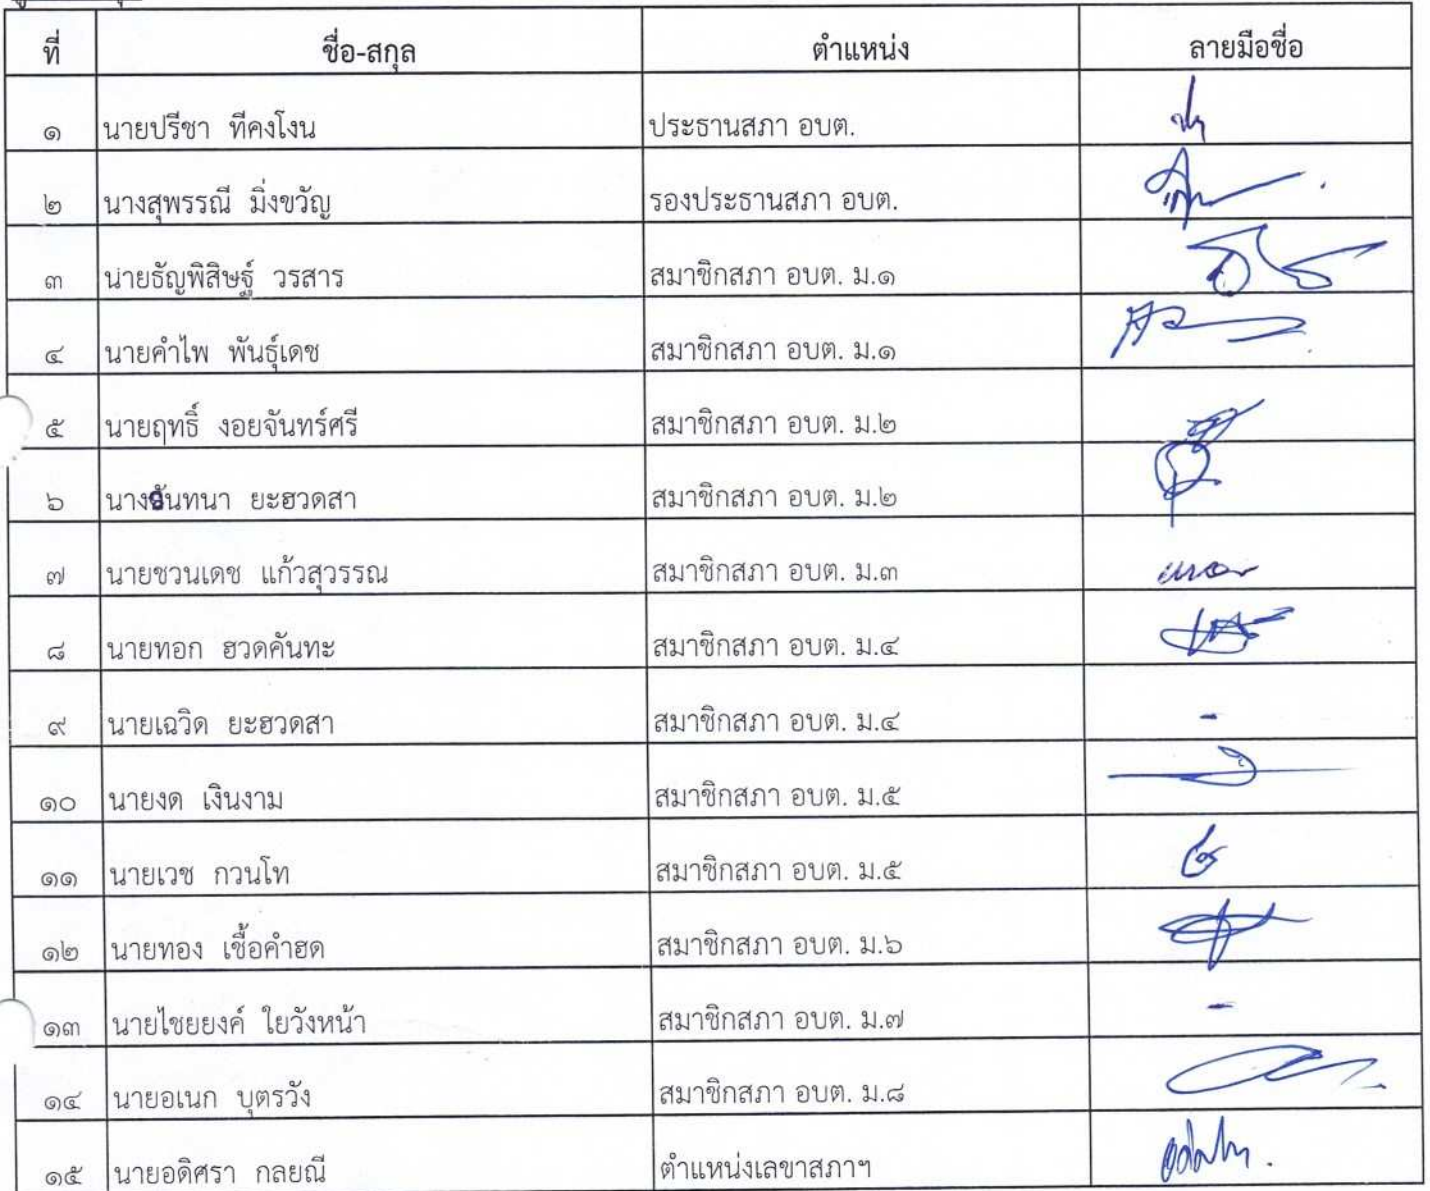 ที่ ชื่อ-สกุล ตำแหน่ง ลายมือชื่อ
๑ นายปรีชา ทีคงโงน ประธานสภา อบต.
๒ นางสุพรรณี มิ่งขวัญ รองประธานสภา อบต.
๓ นายธัญพิสิษฐ์ วรสาร สมาชิกสภา อบต. ม.๑
๔ นายคำไพ พันธุ์เดช สมาชิกสภา อบต. ม.๑
๕ นายฤทธิ์ งอยจันทร์ศรี สมาชิกสภา อบต. ม.๒
๖ ยะฮวดสา สมาชิกสภา อบต. ม.๒
๗ นายชวนเดช แก้วสุวรรณ สมาชิกสภา อบต. ม.๓
๘ นายทอก ฮวดคันทะ สมาชิกสภา อบต. ม.๔
๙ นายเฉวิด ยะฮวดสา สมาชิกสภา อบต. ม.๔ -
๑๐ นายงด เงินงาม สมาชิกสภา อบต. ม.๕
๑๑ นายเวช กวนโท สมาชิกสภา อบต. ม.๕
๑๒ นายทอง เชื้อคำฮด สมาชิกสภา อบต. ม.๖
๑๓ นายไชยยงค์ ใยวังหน้า สมาชิกสภา อบต. ม.๗ -
๑๔ นายอเนก บุตรวัง สมาชิกสภา อบต. ม.๘
๑๕ นายอดิศรา กลยณี ตำแหน่งเลขาสภาฯ